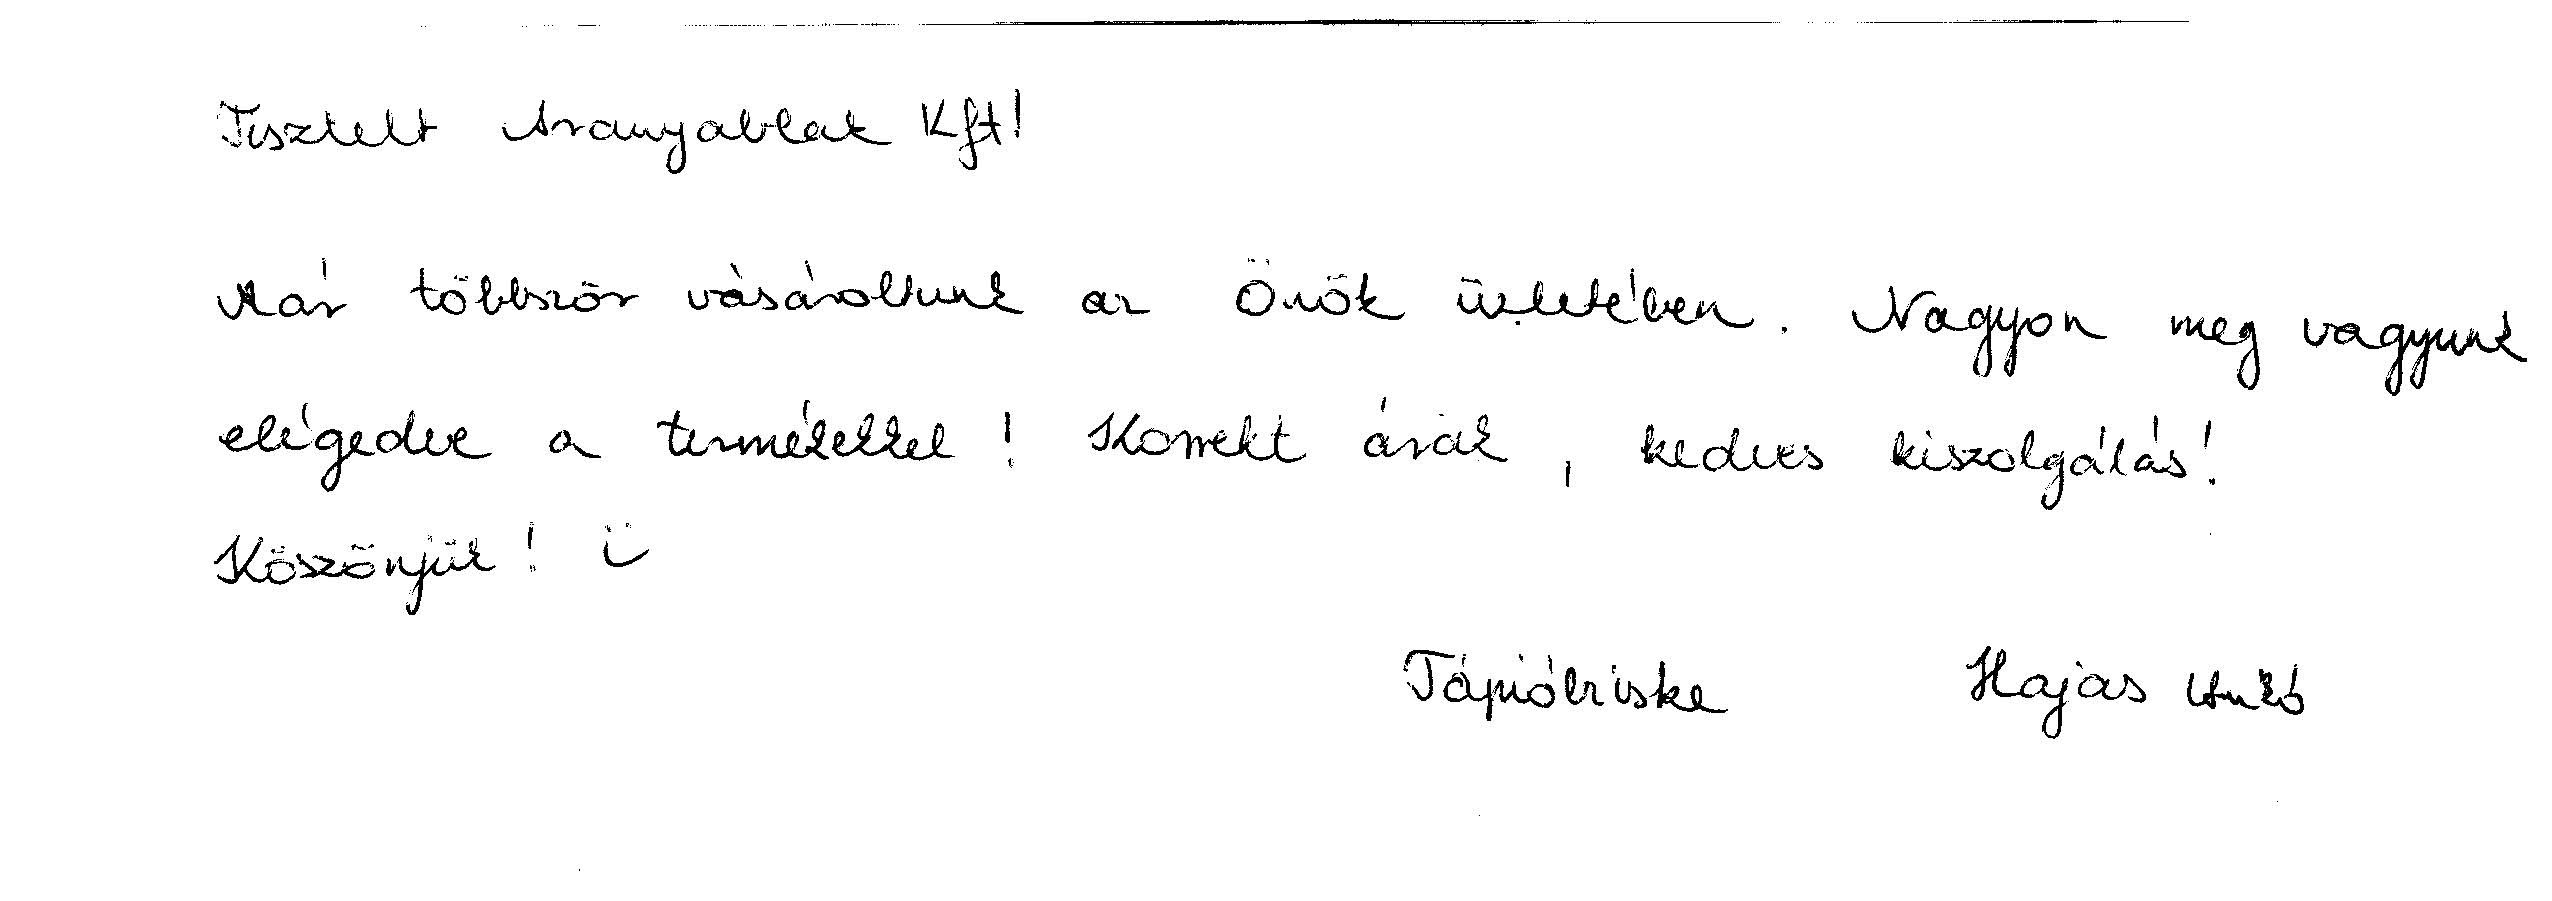 Tisztelt Aranyablak Kft!
Már többször vásároltunk az Önök üzletében. Nagyon meg vagyunk
elégedve a termékekkel! Korrekt árak, kedves kiszolgálás!
Köszönjük! Ü
Tápióbicske Hajas Anikó